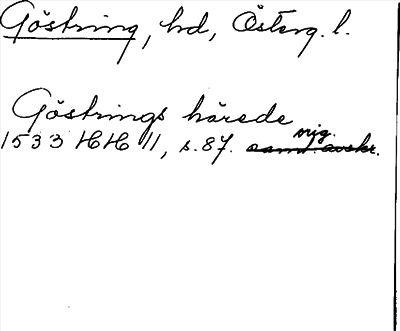 Göstring, hd, Österg. l.
Göstrings härede
orig.
1533 HH 11, s. 87. samt. avskr.